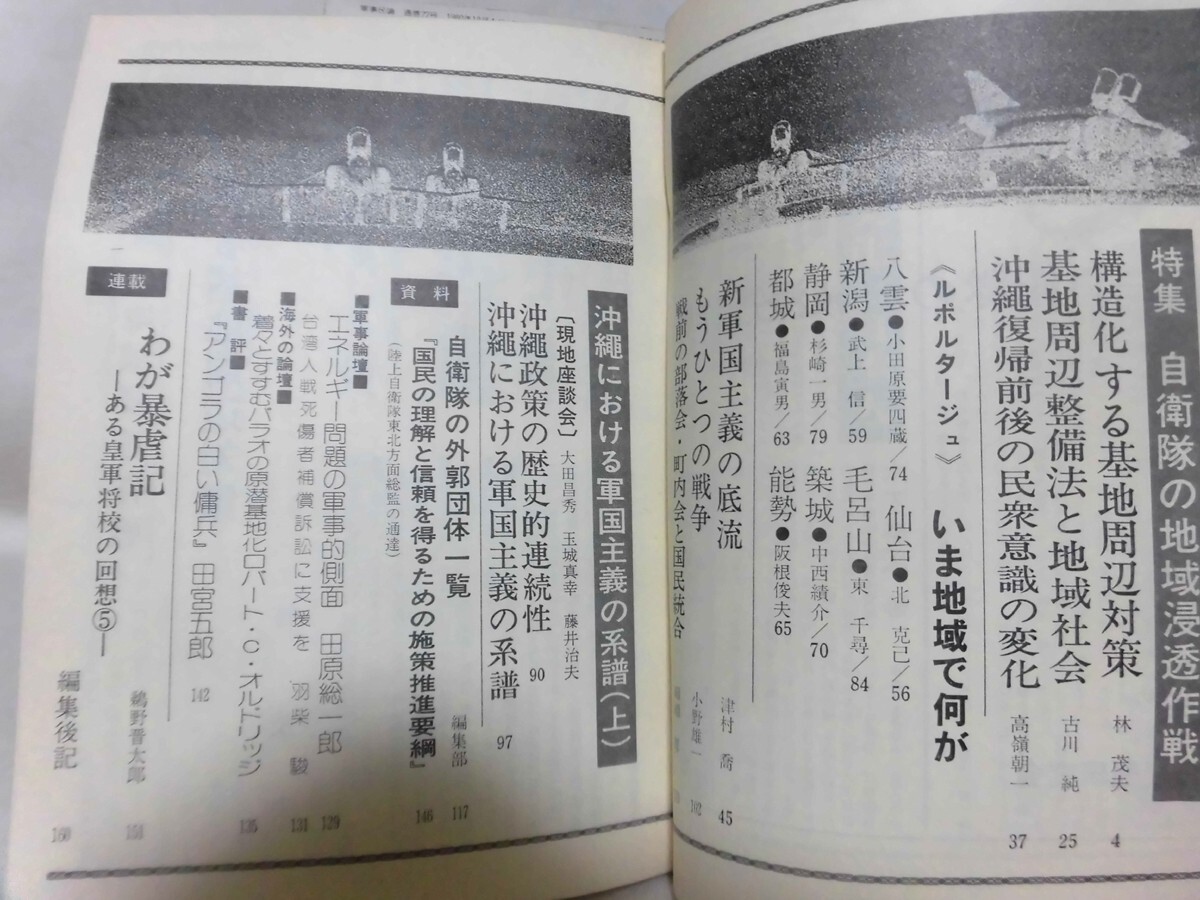 特集 自衛隊の地域浸透作戦
構造化する基地周辺対策 林 茂夫 4
基地周辺整備法と地域社会 古川 純 25
沖繩復帰前後の民衆意識の変化 高嶺朝一 37
《ルポルタージュ》 いま地域で何が
八雲●小田原要四蔵/74 仙台●北 克己/56
新潟●武上 信/59 毛呂山●東 千尋/84
静岡●杉崎一男/79 築城●中西績介/70
都城●福島寅男/63 能勢●阪根俊夫65
新軍国主義の底流 津村 喬 45
もうひとつの戦争 小野雄一 102
戦前の部落会・町内会と国民統合
沖繩における軍国主義の系譜(上)
〔現地座談会〕 大田昌秀 玉城真幸 藤井治夫
沖繩政策の歴史的連続性 90
沖繩における軍国主義の系譜 97
資料
自衛隊の外郭団体一覧 編集部 117
『国民の理解と信頼を得るための施策推進要綱』 146
(陸上自衛隊東北方面総監の通達)
■軍事論壇■
エネルギー問題の軍事的側面 田原総一郎 129
台湾人戦死傷者補償訴訟に支援を 羽柴 駿 131
■海外の論壇■
着々とすすむパラオの原潜基地化ロバート・C・オルドリッジ 135
■書評■
『アンゴラの白い傭兵』田宮五郎 142
連載
わが暴虐記
―ある皇軍将校の回想⑤― 鵜野晋太郎 151
編集後記 160